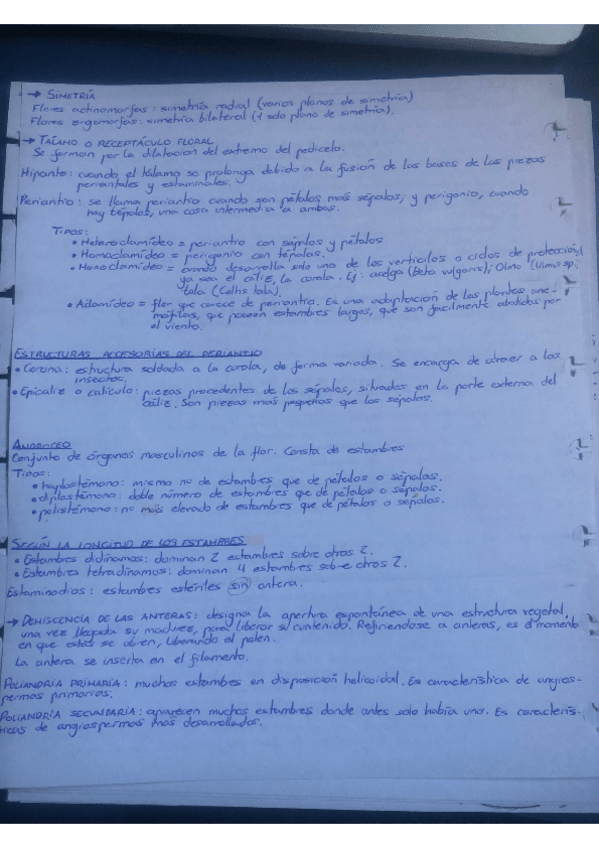 → SIMETRÍA
Flores actinomorfas: simetría radial (varios planos de simetría)
Flores zigomorfas: simetría bilateral (1 solo plano de simetría).
→ TÁLAMO O RECEPTÁCULO FLORAL
Se forman por la dilatación del extremo del pedicelo.
Hipanto: cuando el tálamo se prolonga debido a la fusión de las bases de las piezas
periantales y estaminales.
Periantio: se llama periantio cuando son pétalos más sépalos, y perigonio, cuando
hay tépalos, una cosa intermedia a ambas.
TIPOS:
• Heteroclamídeo = periantio con sépalos y pétalos
• Homoclamídeo = perigonio con tépalos.
• Monoclamídeo = cuando desarrolla solo uno de los verticilos o ciclos de protección,
ya sea el cáliz, la corola. Ej: acelga (Beta vulgaris); Olmo (Ulmus sp.;
tala (Celtis tala).
• Aclamídeo = flor que carece de periantio. Es una adaptación de las plantas ane-
mófilas, que poseen estambres largos, que son fácilmente abatidos por
el viento.
ESTRUCTURAS ACCESORIAS DEL PERIANTIO
• Corona: estructura soldada a la corola, de forma variada. Se encarga de atraer a los
insectos.
• Epicaliz o calículo: piezas procedentes de los sépalos, situadas en la parte externa del
cáliz. Son piezas más pequeñas que los sépalos.
ANDROCEO
Conjunto de órganos masculinos de la flor. Consta de estambres
TIPOS:
• haplostémono: mismo nº de estambres que de pétalos o sépalos.
• diplostémono: doble número de estambres que de pétalos o sépalos.
• polistémono: nº más elevado de estambres que de pétalos o sépalos.
SEGÚN LA LONGITUD DE LOS ESTAMBRES
• Estambres didínamos: dominan 2 estambres sobre otros 2.
• Estambres tetradínamos: dominan 4 estambres sobre otros 2.
Estaminodios: estambres estériles sin antera.
→ DEHISCENCIA DE LAS ANTERAS: designa la apertura espontánea de una estructura vegetal,
una vez llegada su madurez, para liberar su contenido. Refiriéndose a anteras, es el momento
en que estas se abren, liberando el polen.
La antera se inserta en el filamento.
POLIANDRIA PRIMARIA: muchos estambres en disposición helicoidal. Es característica de angios-
permas primarias.
POLIANDRIA SECUNDARIA: aparecen muchos estambres donde antes solo había uno. Es caracterís-
ticas de angiospermas más desarrolladas.